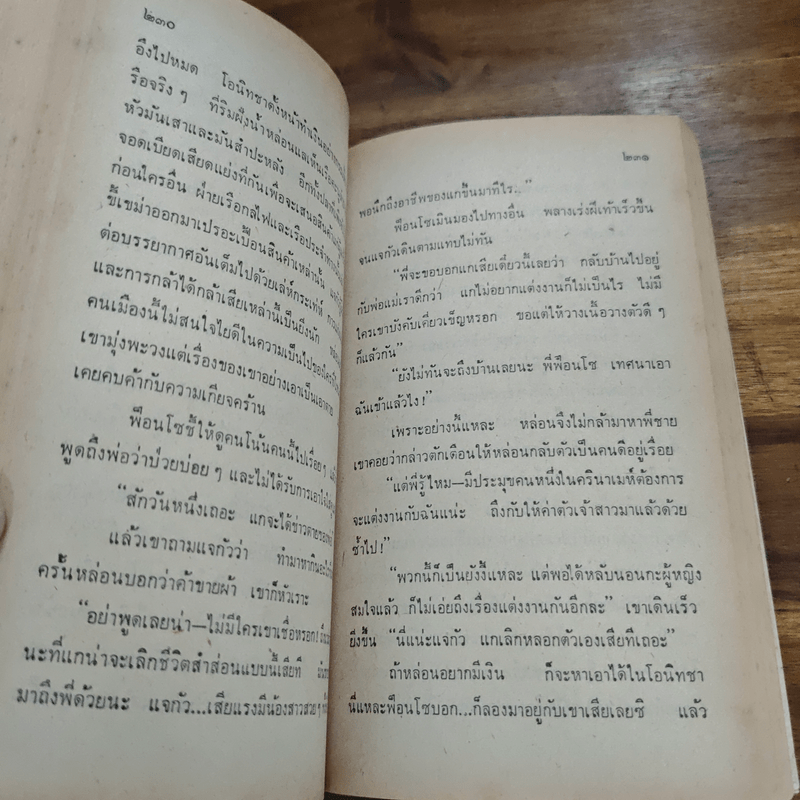 ๒๓๐
อึงไปหมด โอนิทชาตั้งหน้าทำเงินอย่าง
รือจริง ๆ ที่ริมฝั่งน้ำหล่อนแลเห็นเรือ
หัวมันเสาและมันสำปะหลัง อีกทั้งปลา
จอดเบียดเสียดแย่งที่กันเพื่อจะเสนอสินค้า
ก่อนใครอื่น ฝ่ายเรือกลไฟและเรือประจำ
ขี้เขม่าออกมาเปรอะเปื้อนสินค้าเหล่านั้น
ต่อบรรยากาศอันเต็มไปด้วยเล่ห์กระเท่ห์
และการกล้าได้กล้าเสียเหล่านี้เป็นยิ่งนัก
คนเมืองนี้ไม่สนใจไยดีในความเป็นไปของใคร
เขามุ่งพะวงแต่เรื่องของเขาอย่างเอาเป็นเอาตาย
เคยคบค้ากับความเกียจคร้าน
ฟือนโซชี้ให้ดูคนโน้นคนนี้ไปเรื่อย ๆ
พูดถึงพ่อว่าป่วยบ่อย ๆ และไม่ได้รับการเอาใจใส่
“สักวันหนึ่งเถอะ แกจะได้ข่าวตายของ
แล้วเขาถามแจกัวว่า ทำมาหากินอะไร
ครั้นหล่อนบอกว่าค้าขายผ้า เขาก็หัวเราะ
“อย่าพูดเลยน่า—ไม่มีใครเขาเชื่อหรอก!
นะที่แกน่าจะเลิกชีวิตสำส่อนแบบนี้เสียที
มาถึงพี่ด้วยนะ แจกัว...เสียแรงมีน้องสาวสวย ๆ
๒๓๑
พอนึกถึงอาชีพของแกขึ้นมาทีไร..”
ฟือนโซเมินมองไปทางอื่น พลางเร่งฝีเท้าเร็วขึ้น
จนแจกัวเดินตามแทบไม่ทัน
“พี่จะขอบอกแกเสียเดี๋ยวนี้เลยว่า กลับบ้านไปอยู่
กับพ่อแม่เราดีกว่า แกไม่อยากแต่งงานก็ไม่เป็นไร ไม่มี
ใครเขาบังคับเคี่ยวเข็ญหรอก ขอแต่ให้วางเนื้อวางตัวดี ๆ
ก็แล้วกัน”
“ยังไม่ทันจะถึงบ้านเลยนะ พี่ฟือนโซ เทศนาเอา
ฉันเข้าแล้วไง!”
เพราะอย่างนี้แหละ หล่อนจึงไม่กล้ามาหาพี่ชาย
เขาคอยว่ากล่าวตักเตือนให้หล่อนกลับตัวเป็นคนดีอยู่เรื่อย
“แต่พี่รู้ไหม—มีประมุขคนหนึ่งในครินาเมห์ต้องการ
จะแต่งงานกับฉันแน่ะ ถึงกับให้ค่าตัวเจ้าสาวมาแล้วด้วย
ซ้ำไป!”
“พวกนี้ก็เป็นยังงี้แหละ แต่พอได้หลับนอนกะผู้หญิง
สมใจแล้ว ก็ไม่เอ่ยถึงเรื่องแต่งงานกันอีกละ” เขาเดินเร็ว
ยิ่งขึ้น “นี่แน่ะแจกัว แกเลิกหลอกตัวเองเสียทีเถอะ”
ถ้าหล่อนอยากมีเงิน ก็จะหาเอาได้ในโอนิทชา
นี่แหละฟือนโซบอก...ก็ลองมาอยู่กับเขาเสียเลยซิ แล้ว